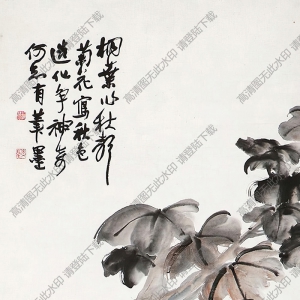 桐葉水秋聲
菊花寫秋色
造化爭神奇
何知有筆墨
高清图无此水印 请登陆下载
高清图无此水印 请登陆下载
高清图无此水印 请登陆下载
高清图无此水印 请登陆下载
高清图无此水印 请登陆下载